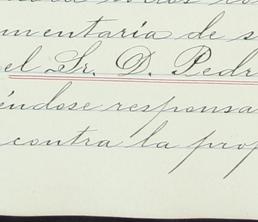 mentaria de s
el Sr. D. Pedr
éndose responsa
contra la prop